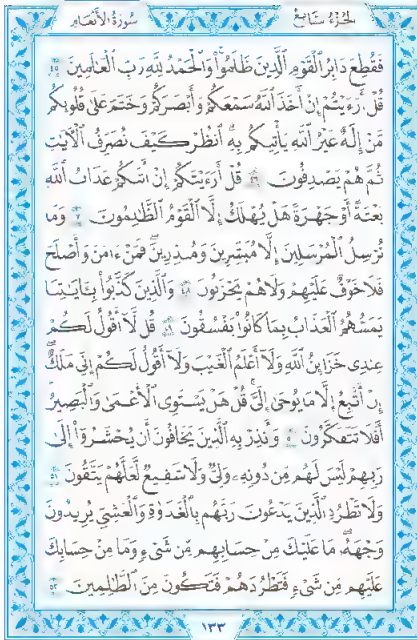 سورة الأنعام
الجزء السابع
فَقُطِعَ دَابِرُ ٱلْقَوْمِ ٱلَّذِينَ ظَلَمُوا۟ وَٱلْحَمْدُ لِلَّهِ رَبِّ ٱلْعَٰلَمِينَ ٤٥
قُلْ أَرَءَيْتُمْ إِنْ أَخَذَ ٱللَّهُ سَمْعَكُمْ وَأَبْصَٰرَكُمْ وَخَتَمَ عَلَىٰ قُلُوبِكُم
مَّنْ إِلَٰهٌ غَيْرُ ٱللَّهِ يَأْتِيكُم بِهِ ٱنظُرْ كَيْفَ نُصَرِّفُ ٱلْءَايَٰتِ
ثُمَّ هُمْ يَصْدِفُونَ ٤٦ قُلْ أَرَءَيْتَكُمْ إِنْ أَتَىٰكُمْ عَذَابُ ٱللَّهِ
بَغْتَةً أَوْ جَهْرَةً هَلْ يُهْلَكُ إِلَّا ٱلْقَوْمُ ٱلظَّٰلِمُونَ ٤٧ وَمَا
نُرْسِلُ ٱلْمُرْسَلِينَ إِلَّا مُبَشِّرِينَ وَمُنذِرِينَ فَمَنْ ءَامَنَ وَأَصْلَحَ
فَلَا خَوْفٌ عَلَيْهِمْ وَلَا هُمْ يَحْزَنُونَ ٤٨ وَٱلَّذِينَ كَذَّبُوا۟ بِـَٔايَٰتِنَا
يَمَسُّهُمُ ٱلْعَذَابُ بِمَا كَانُوا۟ يَفْسُقُونَ ٤٩ قُل لَّآ أَقُولُ لَكُمْ
عِندِى خَزَآئِنُ ٱللَّهِ وَلَآ أَعْلَمُ ٱلْغَيْبَ وَلَآ أَقُولُ لَكُمْ إِنِّى مَلَكٌ
إِنْ أَتَّبِعُ إِلَّا مَا يُوحَىٰٓ إِلَىَّ قُلْ هَلْ يَسْتَوِى ٱلْأَعْمَىٰ وَٱلْبَصِيرُ
أَفَلَا تَتَفَكَّرُونَ ٥٠ وَأَنذِرْ بِهِ ٱلَّذِينَ يَخَافُونَ أَن يُحْشَرُوٓا۟ إِلَىٰ
رَبِّهِمْ لَيْسَ لَهُم مِّن دُونِهِۦ وَلِىٌّ وَلَا شَفِيعٌ لَّعَلَّهُمْ يَتَّقُونَ ٥١
وَلَا تَطْرُدِ ٱلَّذِينَ يَدْعُونَ رَبَّهُم بِٱلْغَدَوٰةِ وَٱلْعَشِىِّ يُرِيدُونَ
وَجْهَهُۥ مَا عَلَيْكَ مِنْ حِسَابِهِم مِّن شَىْءٍ وَمَا مِنْ حِسَابِكَ
عَلَيْهِم مِّن شَىْءٍ فَتَطْرُدَهُمْ فَتَكُونَ مِنَ ٱلظَّٰلِمِينَ ٥٢
١٣٣